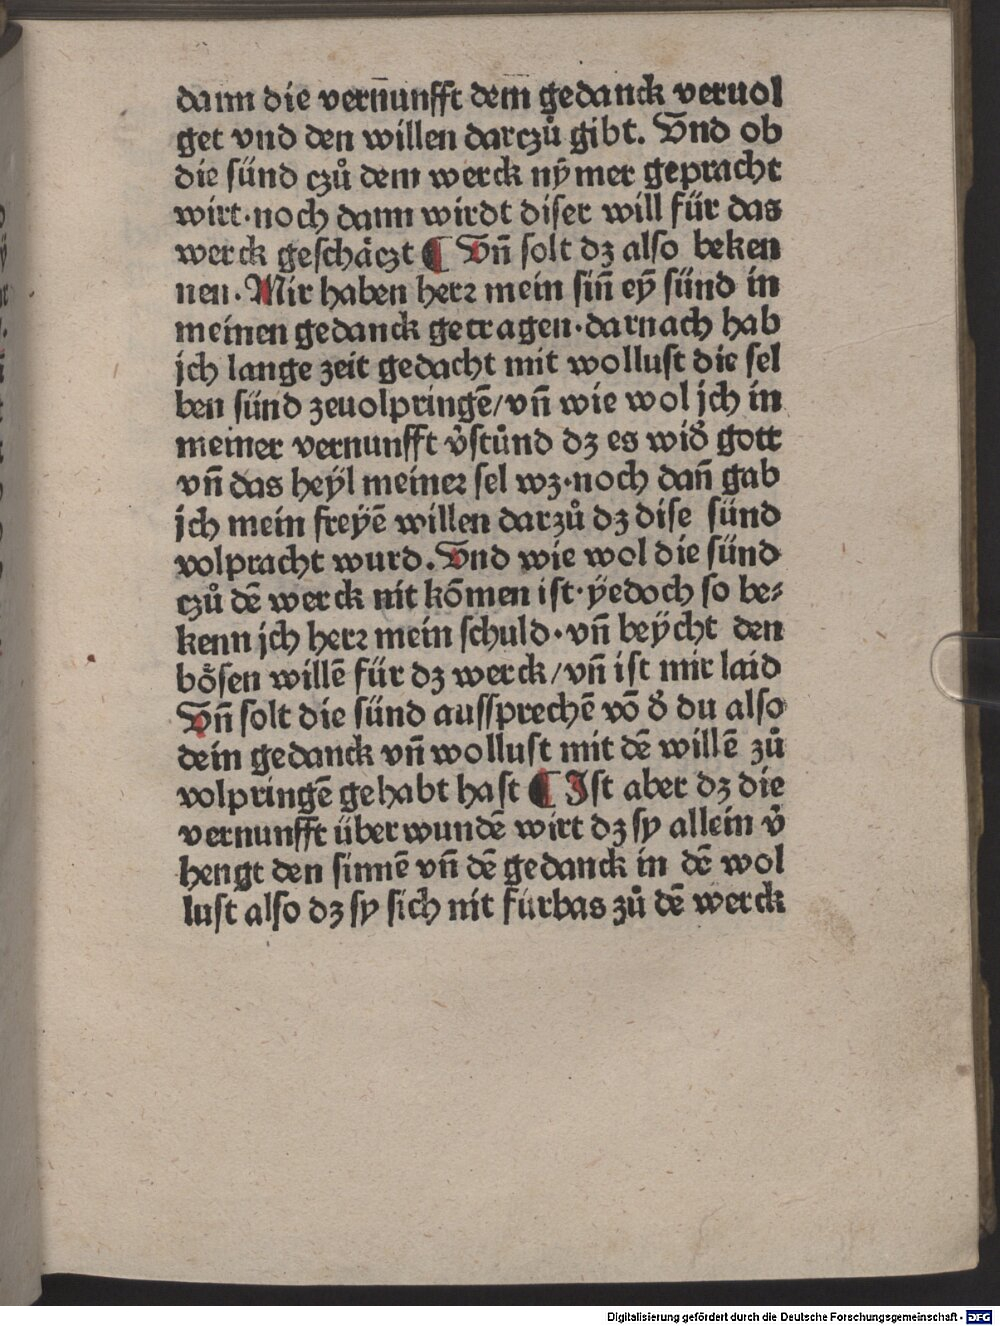 dann die vern̄unfft dem gedanck veruol
get vnd den willen darczů gibt. Vnd ob
die sünd czů dem werck nÿmer gepracht
wirt·noch dann wirdt diser will für das
werck geschäczt ¶ Vn̄ solt dz also beken
nen. Mir haben herꝛ mein sin̄ eÿ̄ sünd in
meinen gedanck getragen·darnach hab
jch lange zeit gedacht mit wollust die sel
ben sünd zeuolpringē/vn̄ wie wol jch in
meiner vernunfft v̉stůnd dz es wid̉ gott
vn̄ das heÿl meineꝛ sel wz·noch dan̄ gab
jch mein freÿē willen darzů dz dise sünd
volpracht wurd. Vnd wie wol die sünd
czů dē werck nit kōmen ist·ÿedoch so be⸗
kenn jch herꝛ mein schuld·vn̄ beÿcht den
bösen willē für dz werck/vn̄ ist mir laid
Vn̄ solt die sünd aussprechē vō d̉ du also
dein gedanck vn̄ wollust mit dē willē zů
volpringē gehabt hast ¶ Ist aber dz die
vernunfft überwundē wirt dz sy allein v̉
hengt den sinnē vn̄ dē gedanck in dē wol
lust also dz sy sich nit fürbas zů dē werck
Digitalisierung gefördert durch die Deutsche Forschungsgemeinschaft - DFG